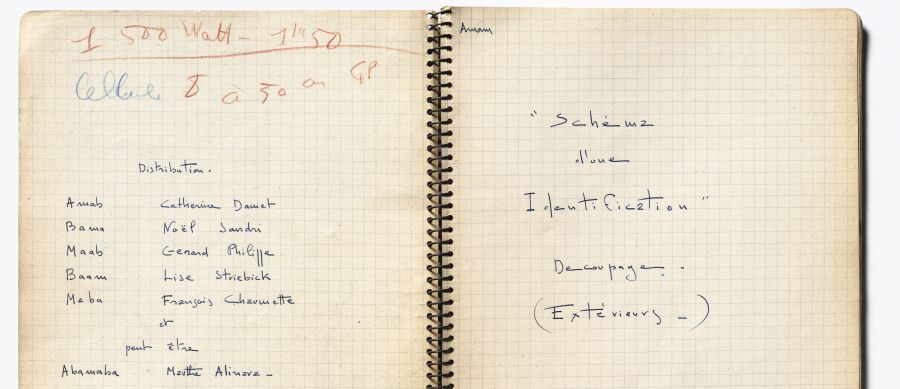 1 500 Watt - 1m50
Cellule 8 à 50 cm GP
Distribution.
Amab Catherine Damet
Bama Noël Sandri
Maab Gerard Philippe
Baam Lise Striebick
Maba François Chaumette
et
peut être
Abamaba Marthe Alinara -
Amam
" Schéma
d'une
Identification "
Decoupage.
(Extérieurs -)